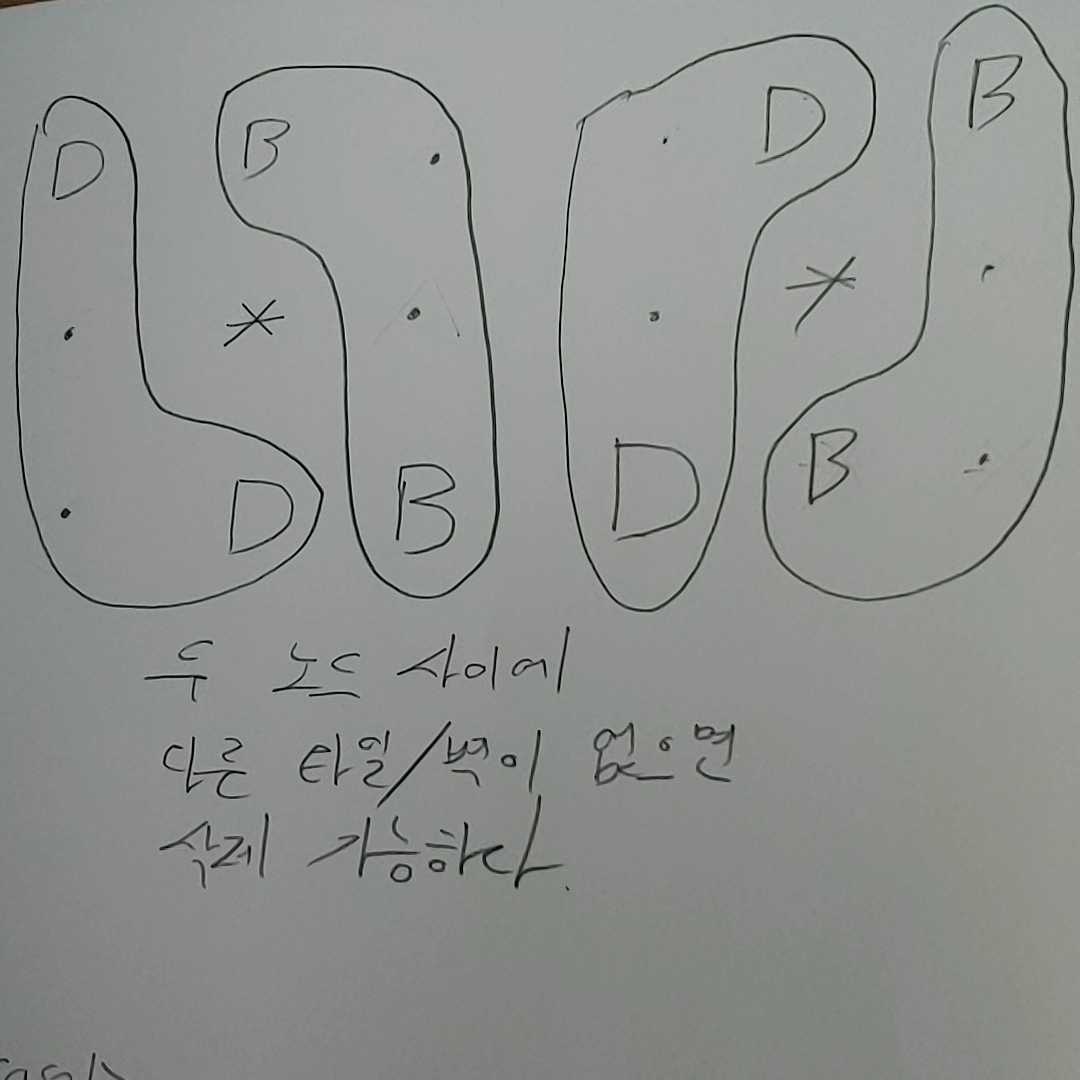 D B . . D B
. * . . * .
. D B D B .
두 노드 사이에
다른 타일/벽이 없으면
삭제 가능하다.